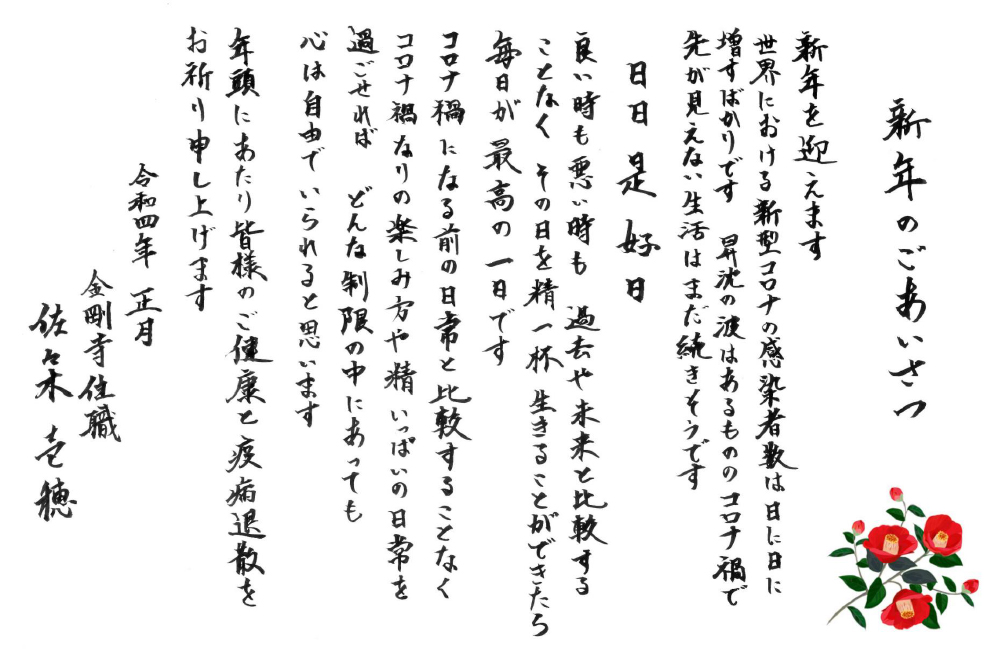 新年のごあいさつ
新年を迎えます
世界における新型コロナの感染者数は日に日に
増すばかりです 昇沈の波はあるもののコロナ禍で
先が見えない生活はまだ続きそうです
日日是好日
良い時も悪い時も 過去や未来と比較する
ことなく その日を精一杯 生きることができたら
毎日が 最高の一日です
コロナ禍になる前の日常と比較することなく
コロナ禍なりの楽しみ方や精いっぱいの日常を
過ごせれば どんな制限の中にあっても
心は自由でいられると思います
年頭にあたり皆様のご健康と疫病退散を
お祈り申し上げます
令和四年 正月
金剛寺住職
佐々木 壱穂